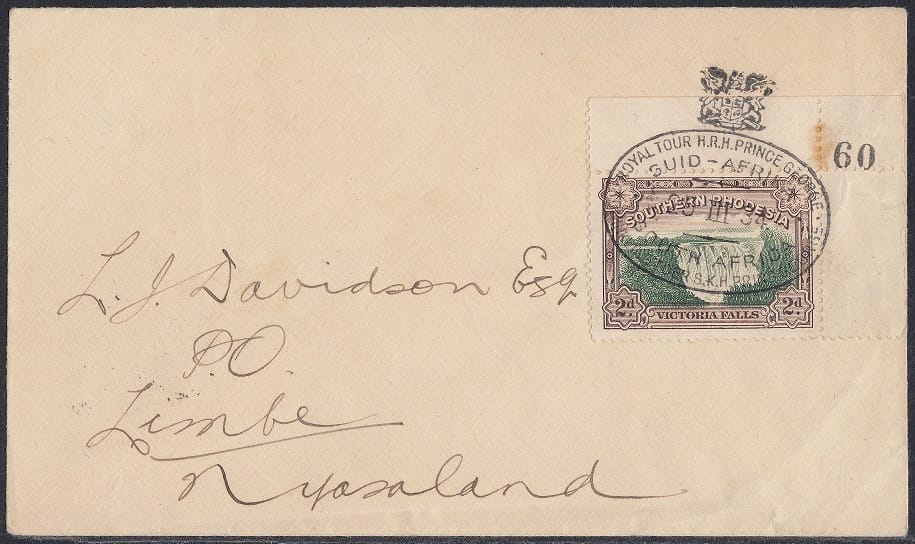 60
ROYAL TOUR H.R.H. PRINCE GEORGE
SUID-AFRIKA
III 34
SOUTH AFRICA
SOUTHERN RHODESIA
2d. 2d.
VICTORIA FALLS
L. J. Davidson Esq
P.O.
Limbe
Nyasaland